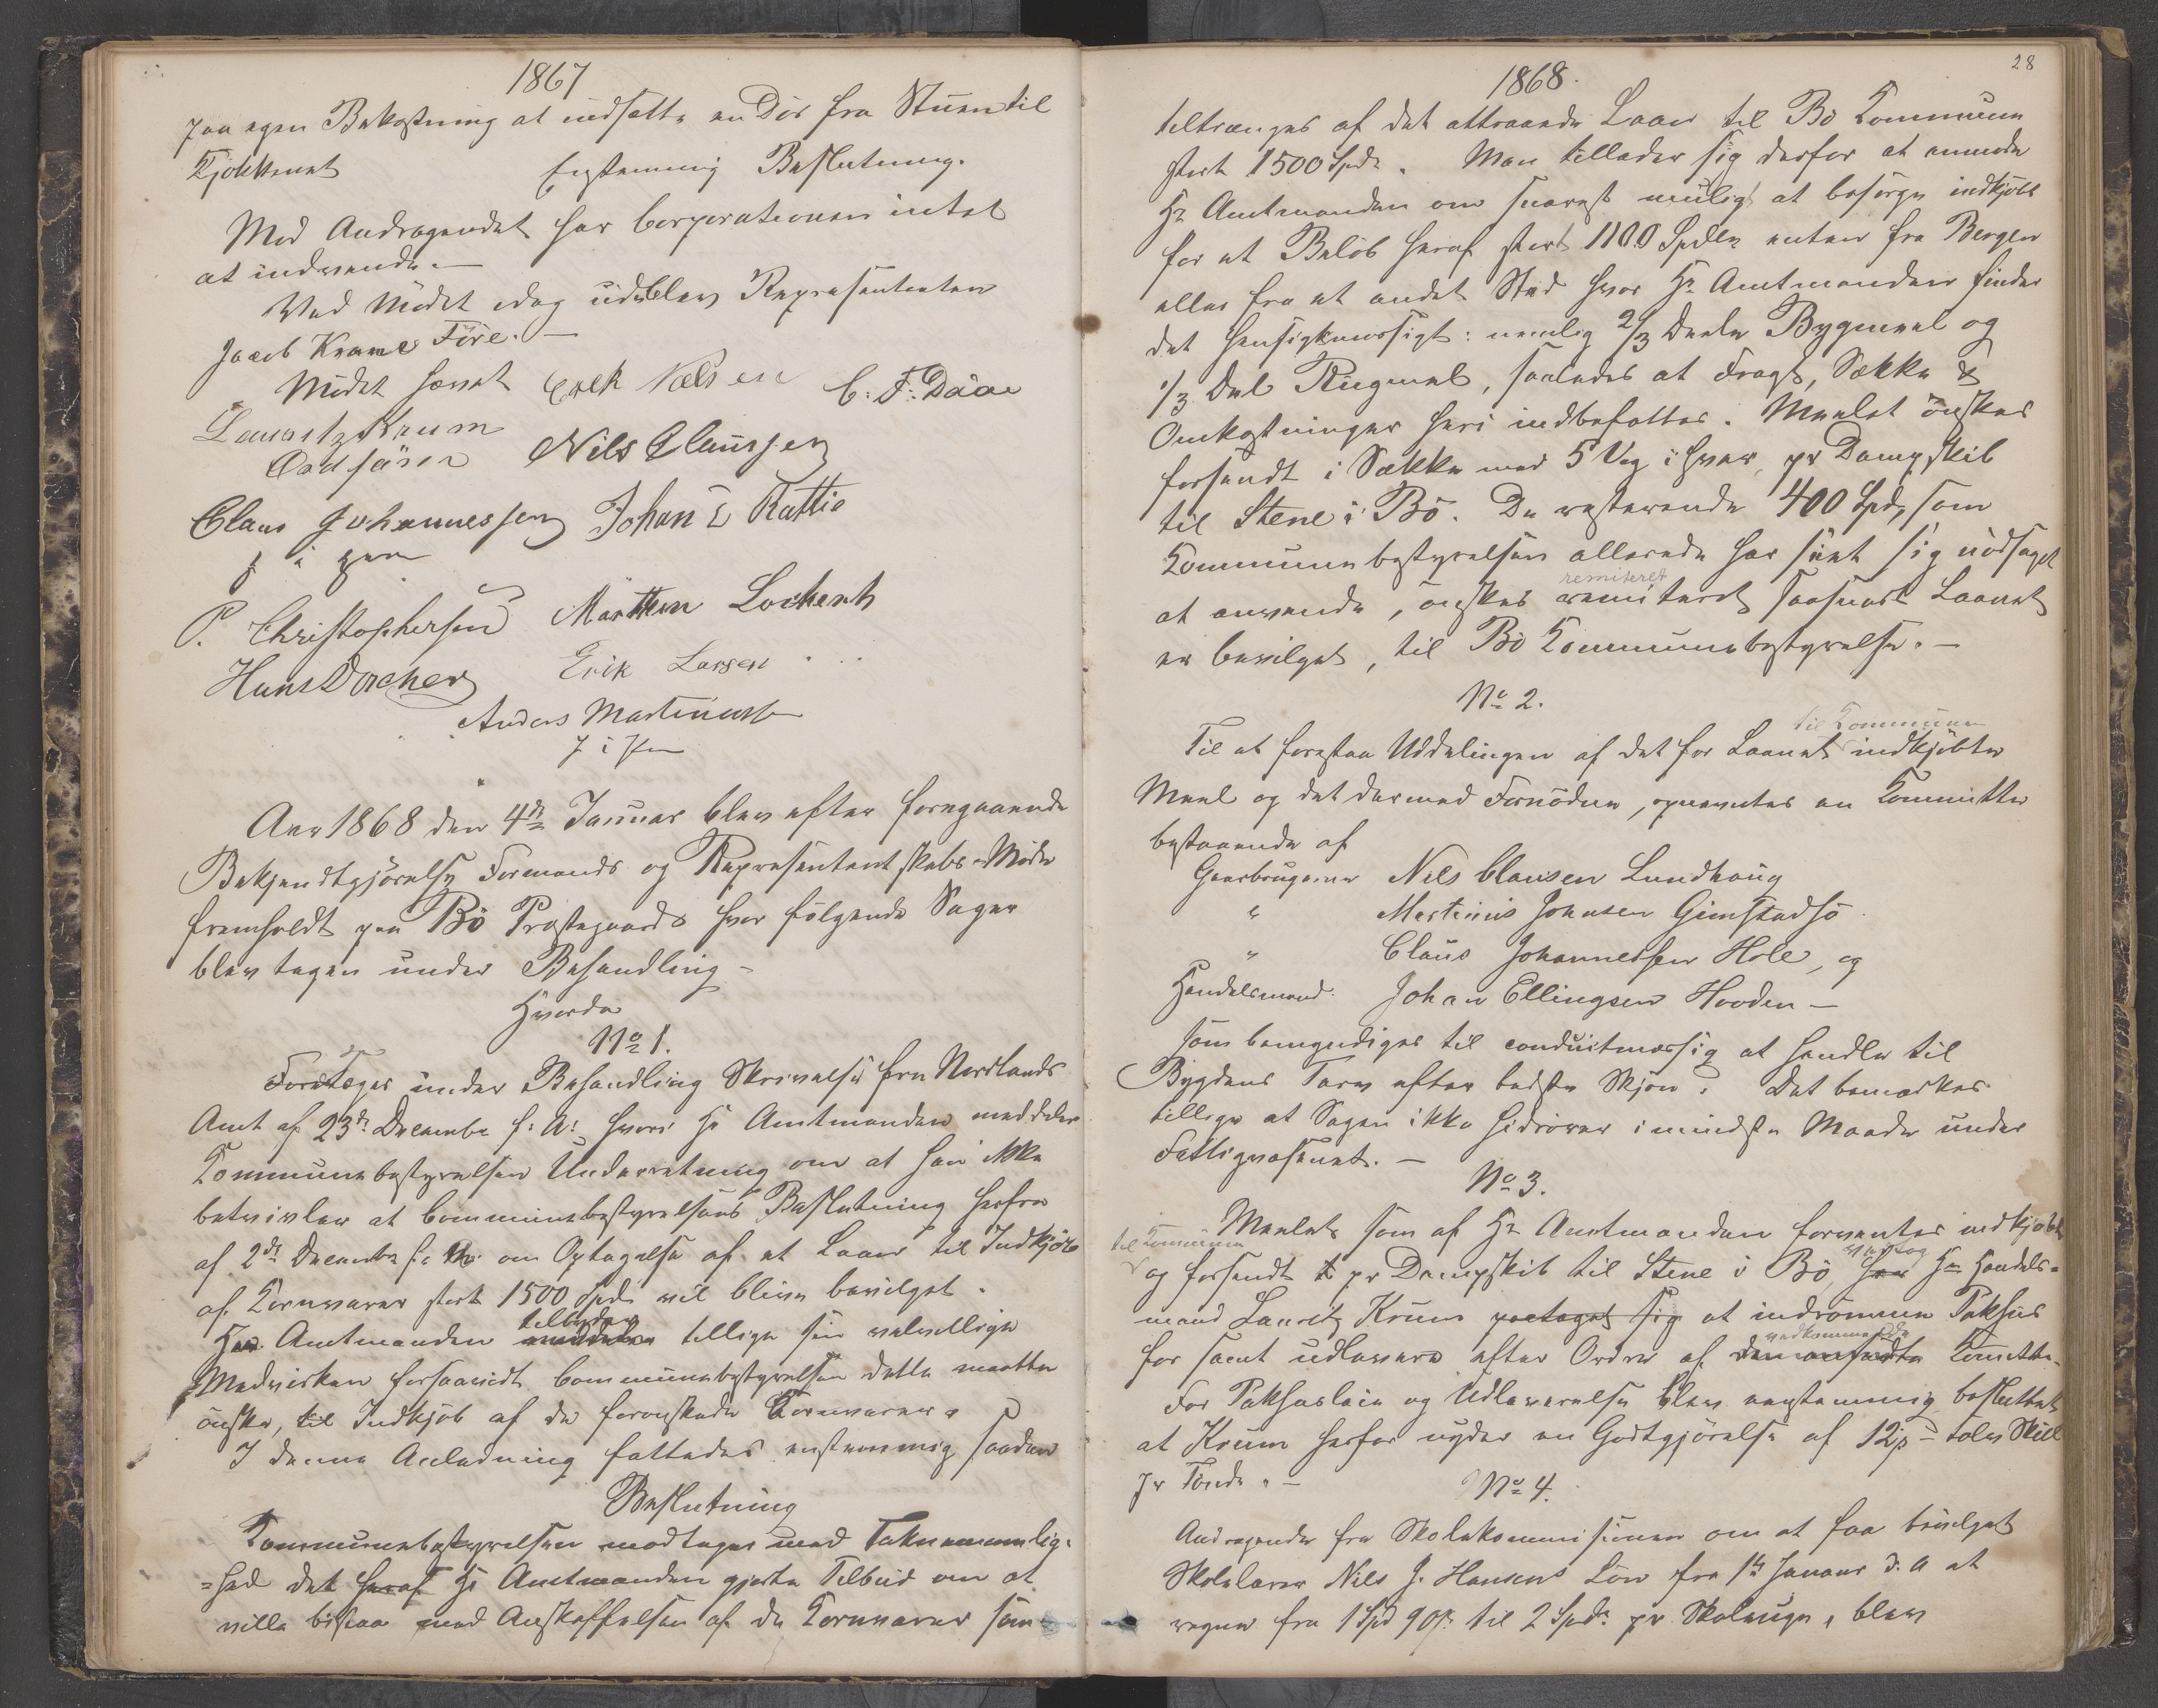 1867
paa egen Bekostning at indsætte en Dör fra Stuen til
Kjökkenet Enstemmig Beslutning.
Mod Andragendet har Corporationen intet
at indvende. —
Ved Mödet idag udeblev Repræsentanten
Jacob Krane Före. —
Mödet hævet Erik Nielsen C. F. Daae
Lauritz Krum
Ordförer Nils Claussen
Claus Johannessen Johan E Rattie
P. Christophersen Marthin Lockert
Hans Dreher Erik Larsen
Anders Martinussen
Aar 1868 den 4de Januar blev efter foregaaende
Bekjendtgjörelse Formands og Repræsentantskabs-Möde
fremholdt paa Bö Præstegaard hvor fölgende Sager
blev tagen under Behandling —
Hvorda
No 1.
Foretoges under Behandling Skrivelse fra Nordlands
Amt af 23de Decembr f: A: hvori Hr Amtmanden meddeler
Kommunebestyrelsen Underretning om at han ikke
betvivler at Communebestyrelsens Beslutning herfra
af 2de Decembr f: A: om Optagelse af et Laan til Indkjöb
af Kornvarer stort 1500 Spd. vil blive bevilget.
tilbyder
Hr. Amtmanden meddeler tillige sin velvillige
Medvirken forsaavidt Communebestyrelsen dette maatte
önske, til Indkjöb af de forönskede Kornvarer.
I denne Anledning fattedes enstemmig saadan
Beslutning
Kommunebestyrelsen modtager med Taknemmelig-
=hed det heraf Hr Amtmanden gjorte Tilbud om at
ville bistaa med Anskaffelsen af de Kornvarer som
28
1868.
tiltrænges af det attraaede Laan til Bö Kommune
stort 1500 Spd. Man tillader sig derfor at anmode
Hr Amtmanden om snarest muligt at besörge indkjöbt
for et Belöb heraf stort 1100 Spdlr enten fra Bergen
eller fra et andet Sted hvor Hr Amtmanden finder
det hensigtsmæssigt: nemlig 2/3 Deele Bygmeel og
1/3 Del Rugmeel, saaledes at Fragt, Sække &
Omkostninger heri indbefattes. Meelet önskes
forsendt i Sække med 5 Vog i hver, pr Dampskib
til Stene i Bö. De resterende 400 Spd, som
Kommunebestyrelsen allerede har seet sig nödsaget
remiteret
at anvende, önskes remiteret saasnart Laanet
er bevilget, til Bö Kommunebestyrelse. —
No 2.
til Kommunen
Til at forestaa Uddelingen af det for Laanet indkjöbte
Meel og det dermed Fornödne, opnævntes en Committe
bestaaende af
Gaardbrugerne Nils Clausen Lundhaug
" Martinus Johnsen Gimstadsö
" Claus Johannessen Hole, og
Handelsmand Johan Ellingsen Hovden —
som bemyndiges til conduitmæssig at handle til
Bygdens Tarv efter bedste Skjön. Det bemærkes
tillige at Sagen ikke hidrörer i mindste Maade under
Fattigvæsenet. —
No 3.
Meelet som af Hr Amtmanden forventes indkjöbt
til Kommunen
og forsendt t pr Dampskib til Stene i Bö har Hr Handels-
mand Lauritz Krum paataget sig at indrömme Pakhus
vedkommende
for samt udlevere efter Ordre af den ansatte Comitte.
For Pakhusleie og Udleverelse blev eenstemmig besluttet
at Krum herfor nyder en Godtgjörelse af 12 ß — tolv Skill
pr Tönde. —
No 4.
Andragende fra Skolekommisionen om at faa bevilget
Skolelærer Nils J. Hansens Lön fra 1ste Januar d. A at
regne fra 1 Spd 90 ß til 2 Spdr pr Skoleuge, blev